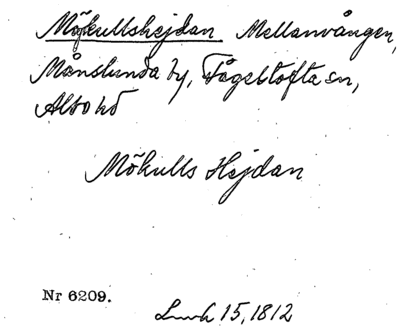 Mökullshejdan Mellanvången,
Månslunda by, Fågeltofta sn,
Albo hd
Mökulls Hejdan
Nr 6209.
Lmh 15, 1812